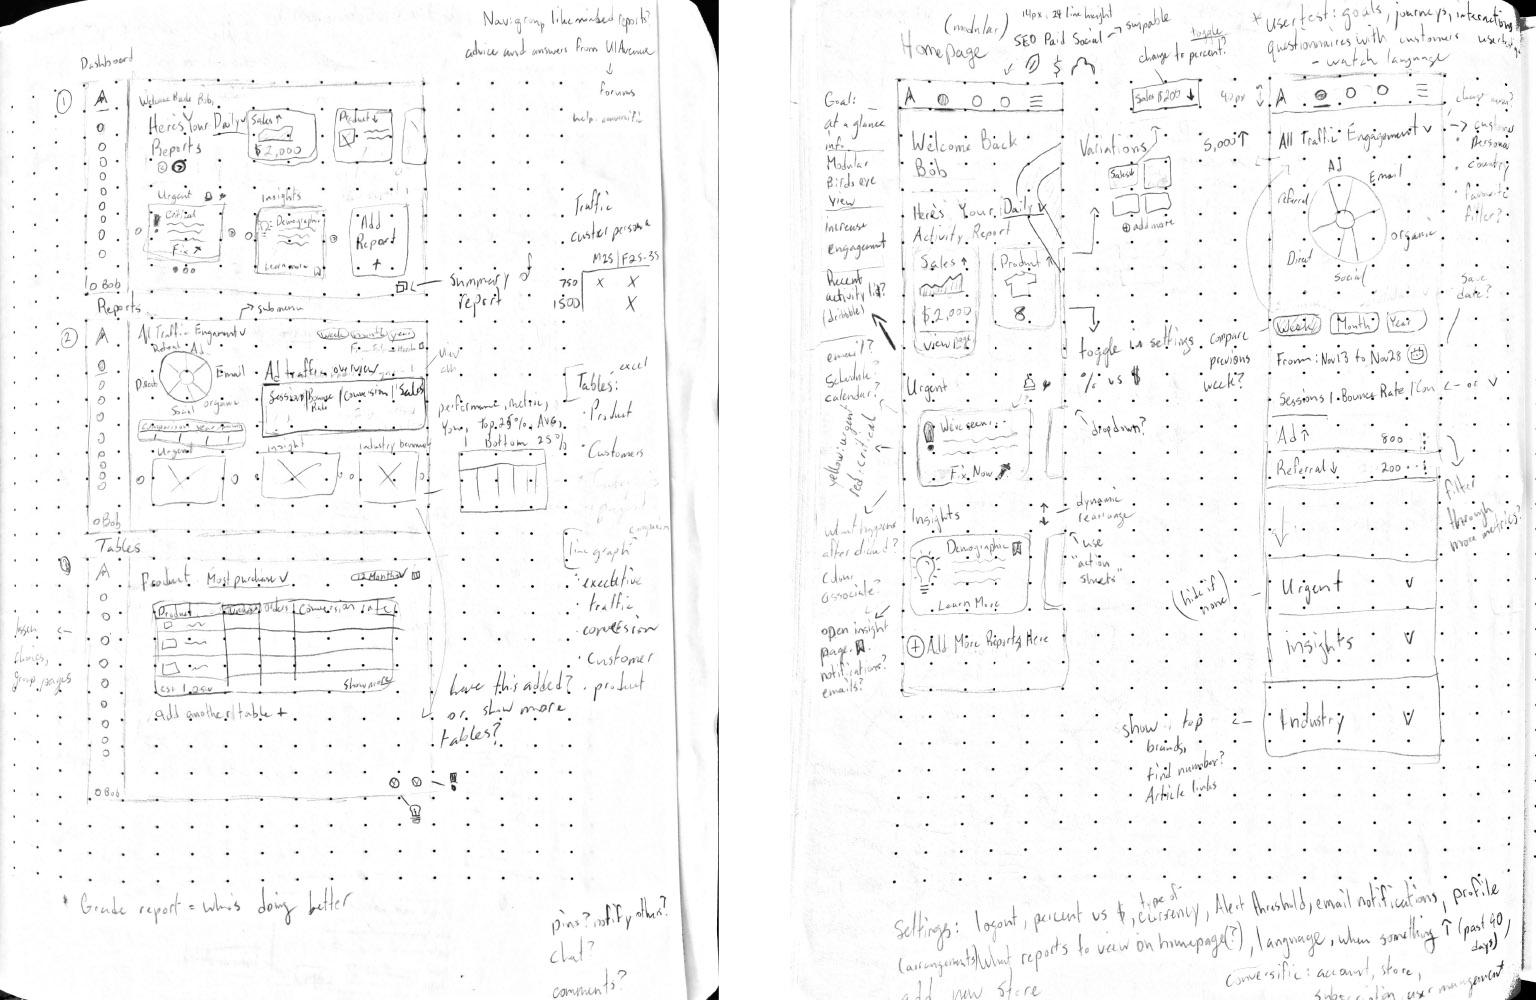 Nav: group likeminded reports?
advice and answers from UI Avenue
forums
help community
Dashboard
1
A
Welcome Back Bob,
Here's Your Daily
Reports
Sales ↑
$2,000
Product ↓
Urgent
Critical
Fix ↗
Insights
Demographic
Learn more
Add
Report
+
Bob
Summary
report
Traffic
customer persona
M25 | F25-35
750 x x
1500 X
Reports
submenu
2
A
All Traffic Engagement v
week month year
Referral
Ad
Email
Direct
Social
organic
Ad traffic overview
Session | Bounce Rate | Conversion | Sales
Urgent
insight
industry
Bob
performance, metric,
You, Top 25%, AVG,
Bottom 25%
excel
Tables:
· Product
· Customers
line graph
· executive
· traffic
· conversion
· Customer
· product
Tables
3
A
Product Most purchase v
12 Months v
Product
orders
Conversion rate
show more
add another table +
Bob
have this added?
or show more
tables?
choices,
group pages
* Grade report = who's doing better
pins? notify others?
chat?
comments?
(modular)
Homepage
14px, 24 line height
SEO Paid Social → swipable
$
toggle
change to percent?
Sales $200 ↓
40px
* usertest: goals, journeys, interactions
questionnaires with customers
- watch language
Goal:
at a glance
info.
Modular
Birds eye
view
Increase
engagement
Recent
activity list?
(dribbble)
email?
Schedule?
calendar?
yellow: urgent
red: critical
What happens
after clicked?
Colour
associate?
open insight
page.
notifications?
emails?
A
Welcome Back
Bob
Here's Your Daily v
Activity Report
Sales ↑
$2,000
view page
Product ↑
8
Urgent
We've seen..
Fix Now ↗
Insights
Demographic
Learn More
+ Add More Reports Here
Variations
Sales
+ add more
5,000 ↑
toggle in settings
% vs $
dropdown?
dynamic
rearrange
use
"action
sheets"
compare
previous
week?
(hide if
none)
show top
brands,
find number?
Article links
A
All Traffic Engagement v
→ customer
Persona
· country?
· favourite
filter?
Ad
Email
referral
organic
Direct
Social
save
date?
Week
Month
Year
From: Nov 13 to Nov 28
Sessions | Bounce Rate | Con <- or v
Ad ↑ 800
Referral ↓ 200
filter
through
more metrics?
Urgent v
insights v
Industry v
Settings: logout, percent vs $, type of currency, Alert threshold, email notifications, profile
(arrangements) What reports to view on homepage(?), language, when something ↑ (past 90 days),
add new store
Conversific: account, store,
Subscription, user management